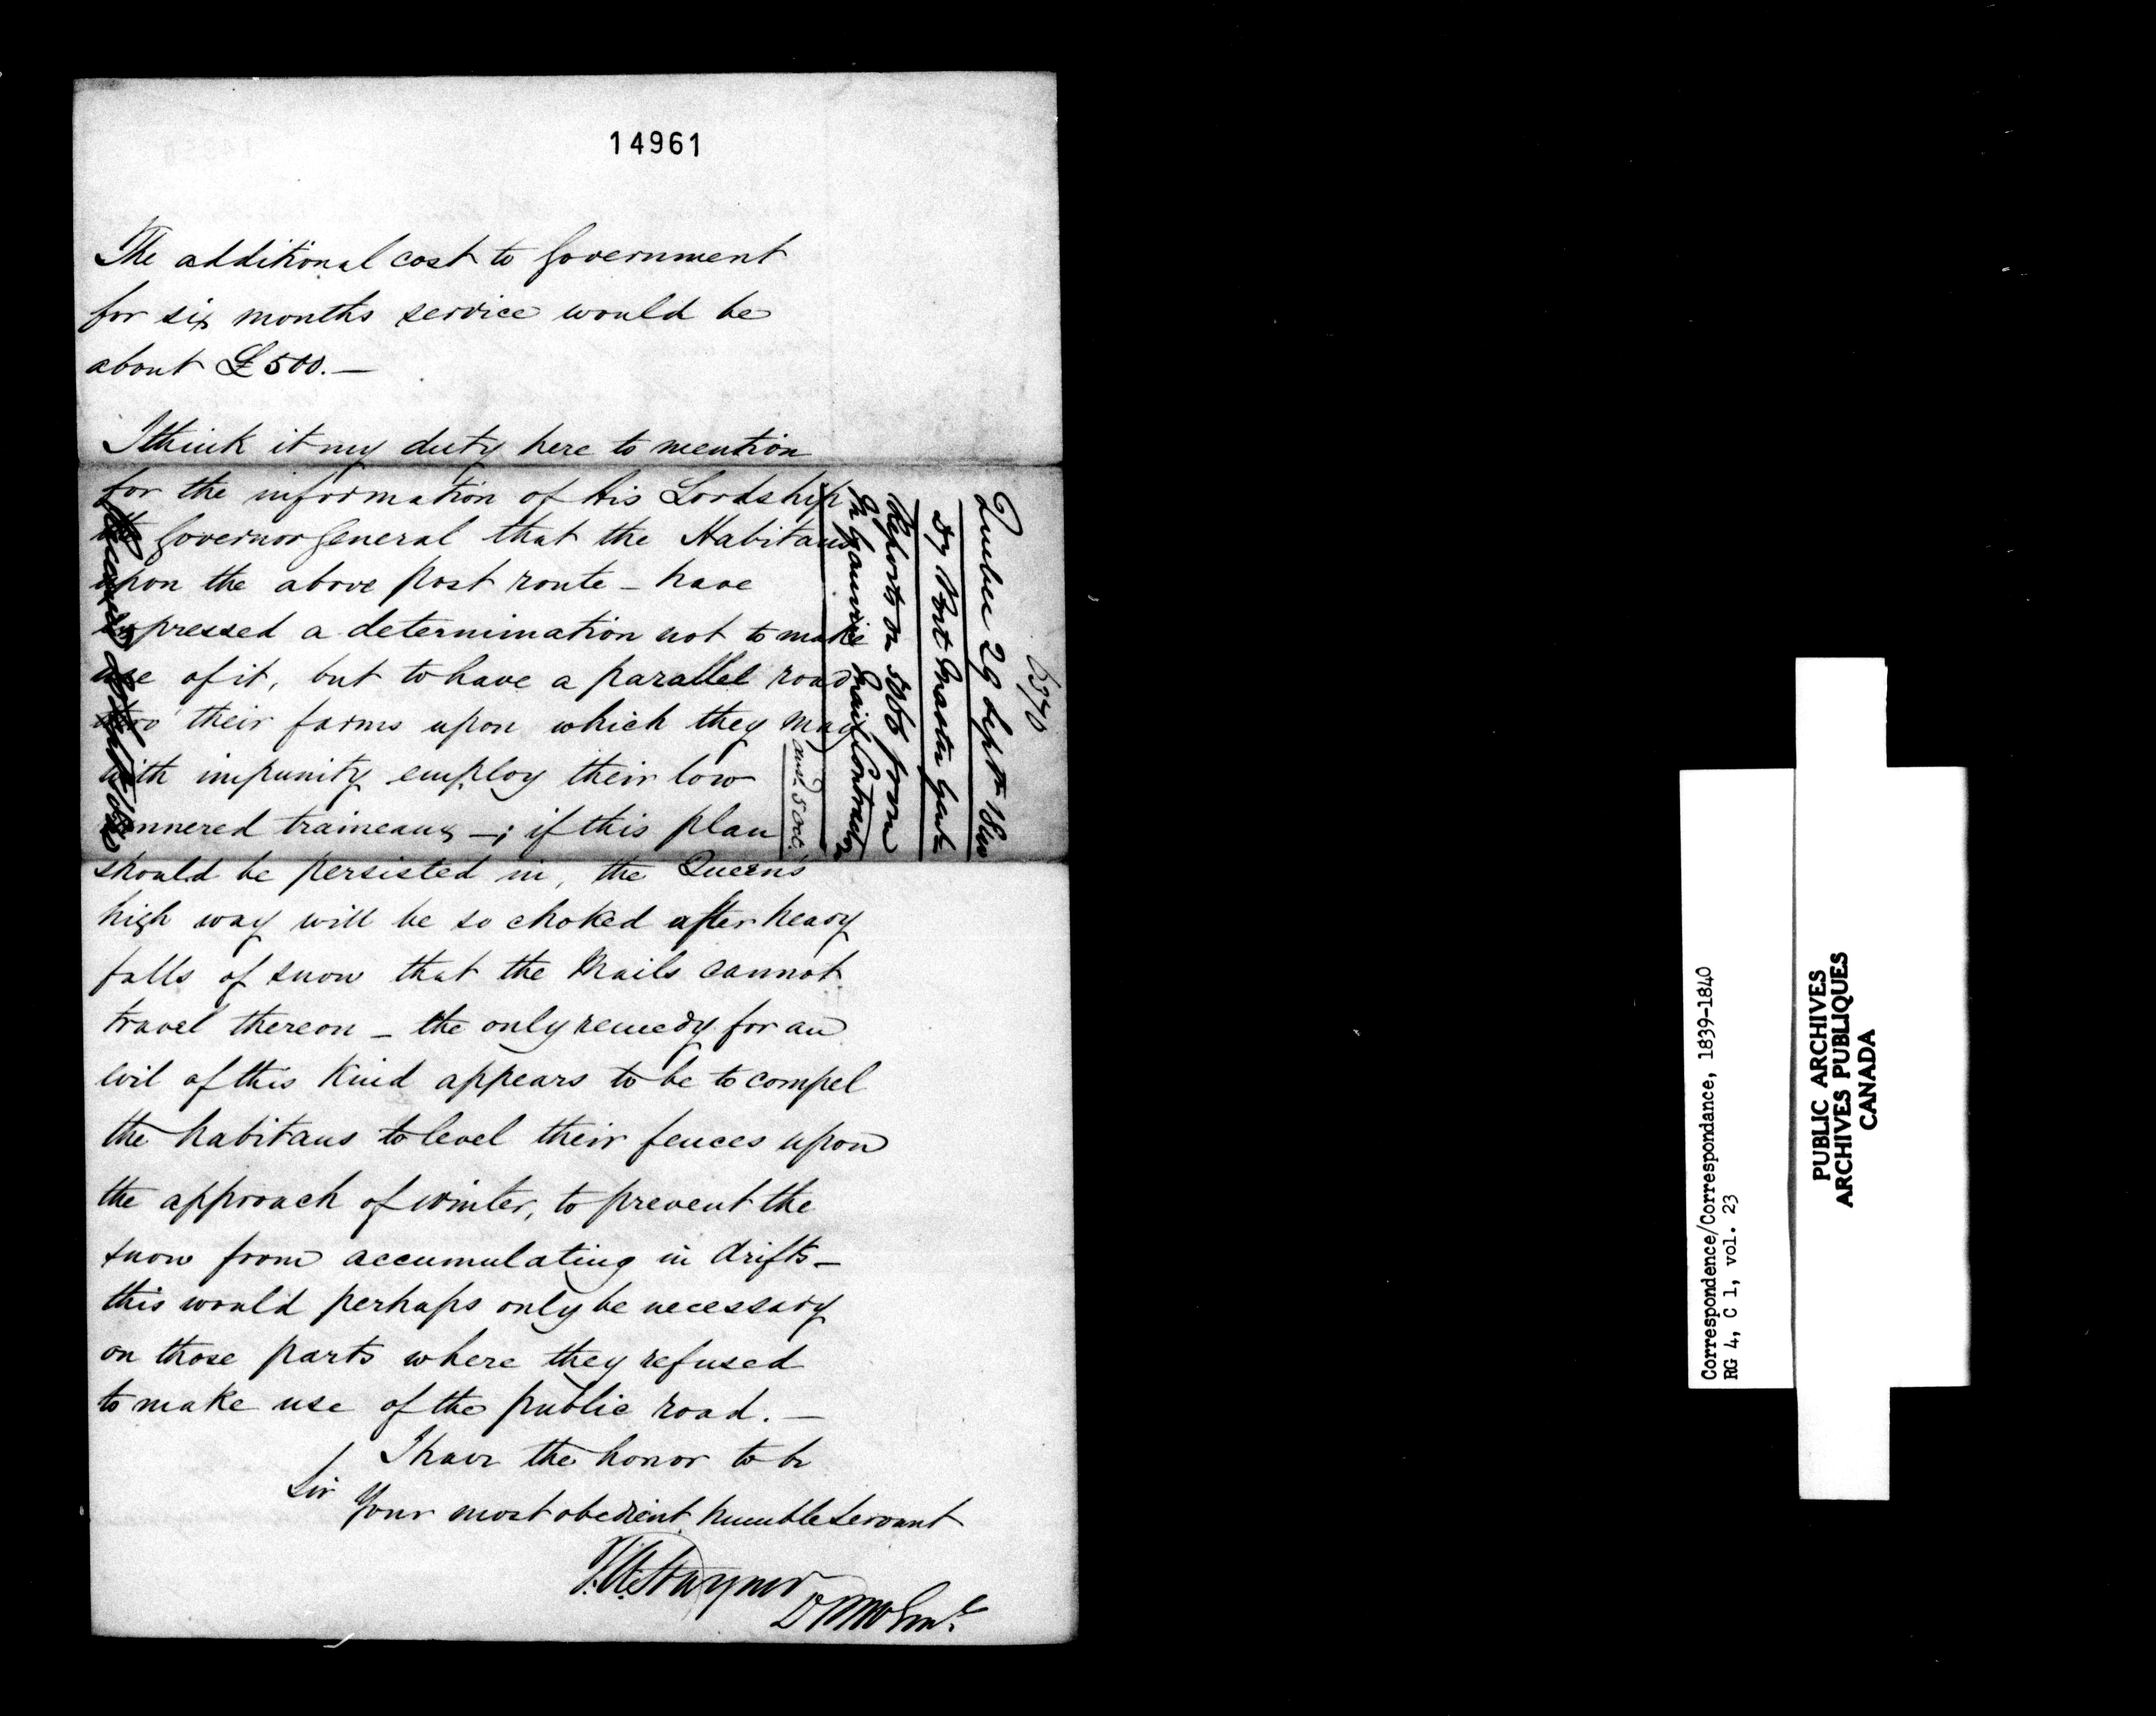 14961
The additional cost to Government
for six months service would be
about £500.—
I think it my duty here to mention
for the information of His Lordship
the Governor General that the Habitans
upon the above post route – have
expressed a determination not to make
use of it, but to have a parallel road
thro' their farms upon which they may
with impunity employ their low
runnered traineaux —; if this plan
should be persisted in, the Queen's
high way will be so choked after heavy
falls of snow that the Mails cannot
travel thereon – the only remedy for an
evil of this kind appears to be to compel
the habitans to level their fences upon
the approach of winter, to prevent the
snow from accumulating in drifts –
this would perhaps only be necessary
on those parts where they refused
to make use of the public road. —
I have the honor to be
Sir
Your most obedient humble Servant
T.A. Stayner
D.P.M.Genl.
6370
Quebec 29 Septr 1840
Dy Post Master Genl.
Reports on 5066 from
Mail Contractor
ansd 5 Oct.
Correspondence/Correspondance, 1839-1840
RG 4, C 1, vol. 23
PUBLIC ARCHIVES
ARCHIVES PUBLIQUES
CANADA